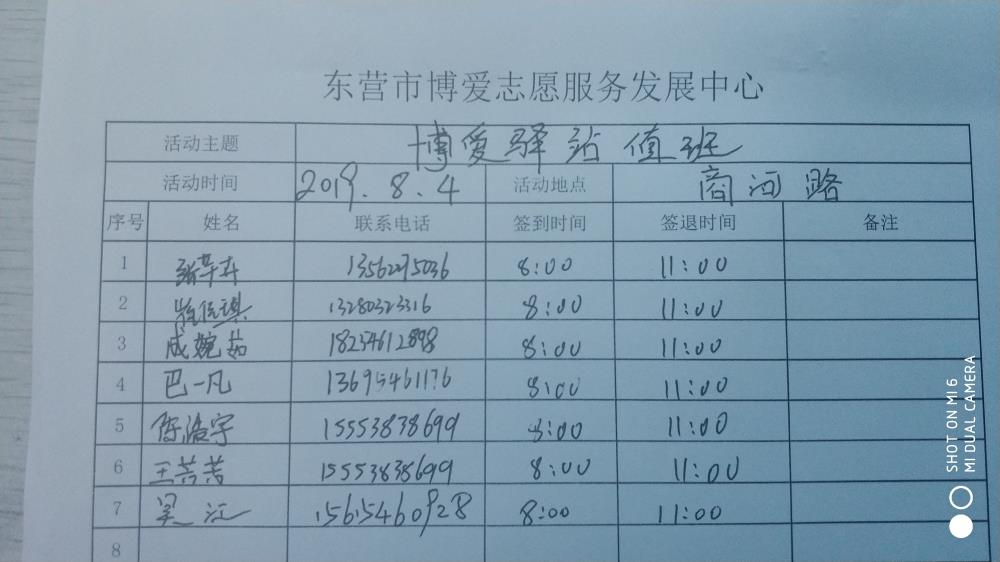 东营市博爱志愿服务发展中心
活动主题 博爱驿站值班
活动时间 2019.8.4 活动地点 商河路
序号 姓名 联系电话 签到时间 签退时间 备注
1 13562275036 8:00 11:00
2 13280323316 8:00 11:00
3 成婉茹 18254612898 8:00 11:00
4 巴一凡 13695461176 8:00 11:00
5 陈浩宇 15553838699 8:00 11:00
6 王芸芸 15553838699 8:00 11:00
7 吴江 15615460928 8:00 11:00
8
SHOT ON MI 6
MI DUAL CAMERA